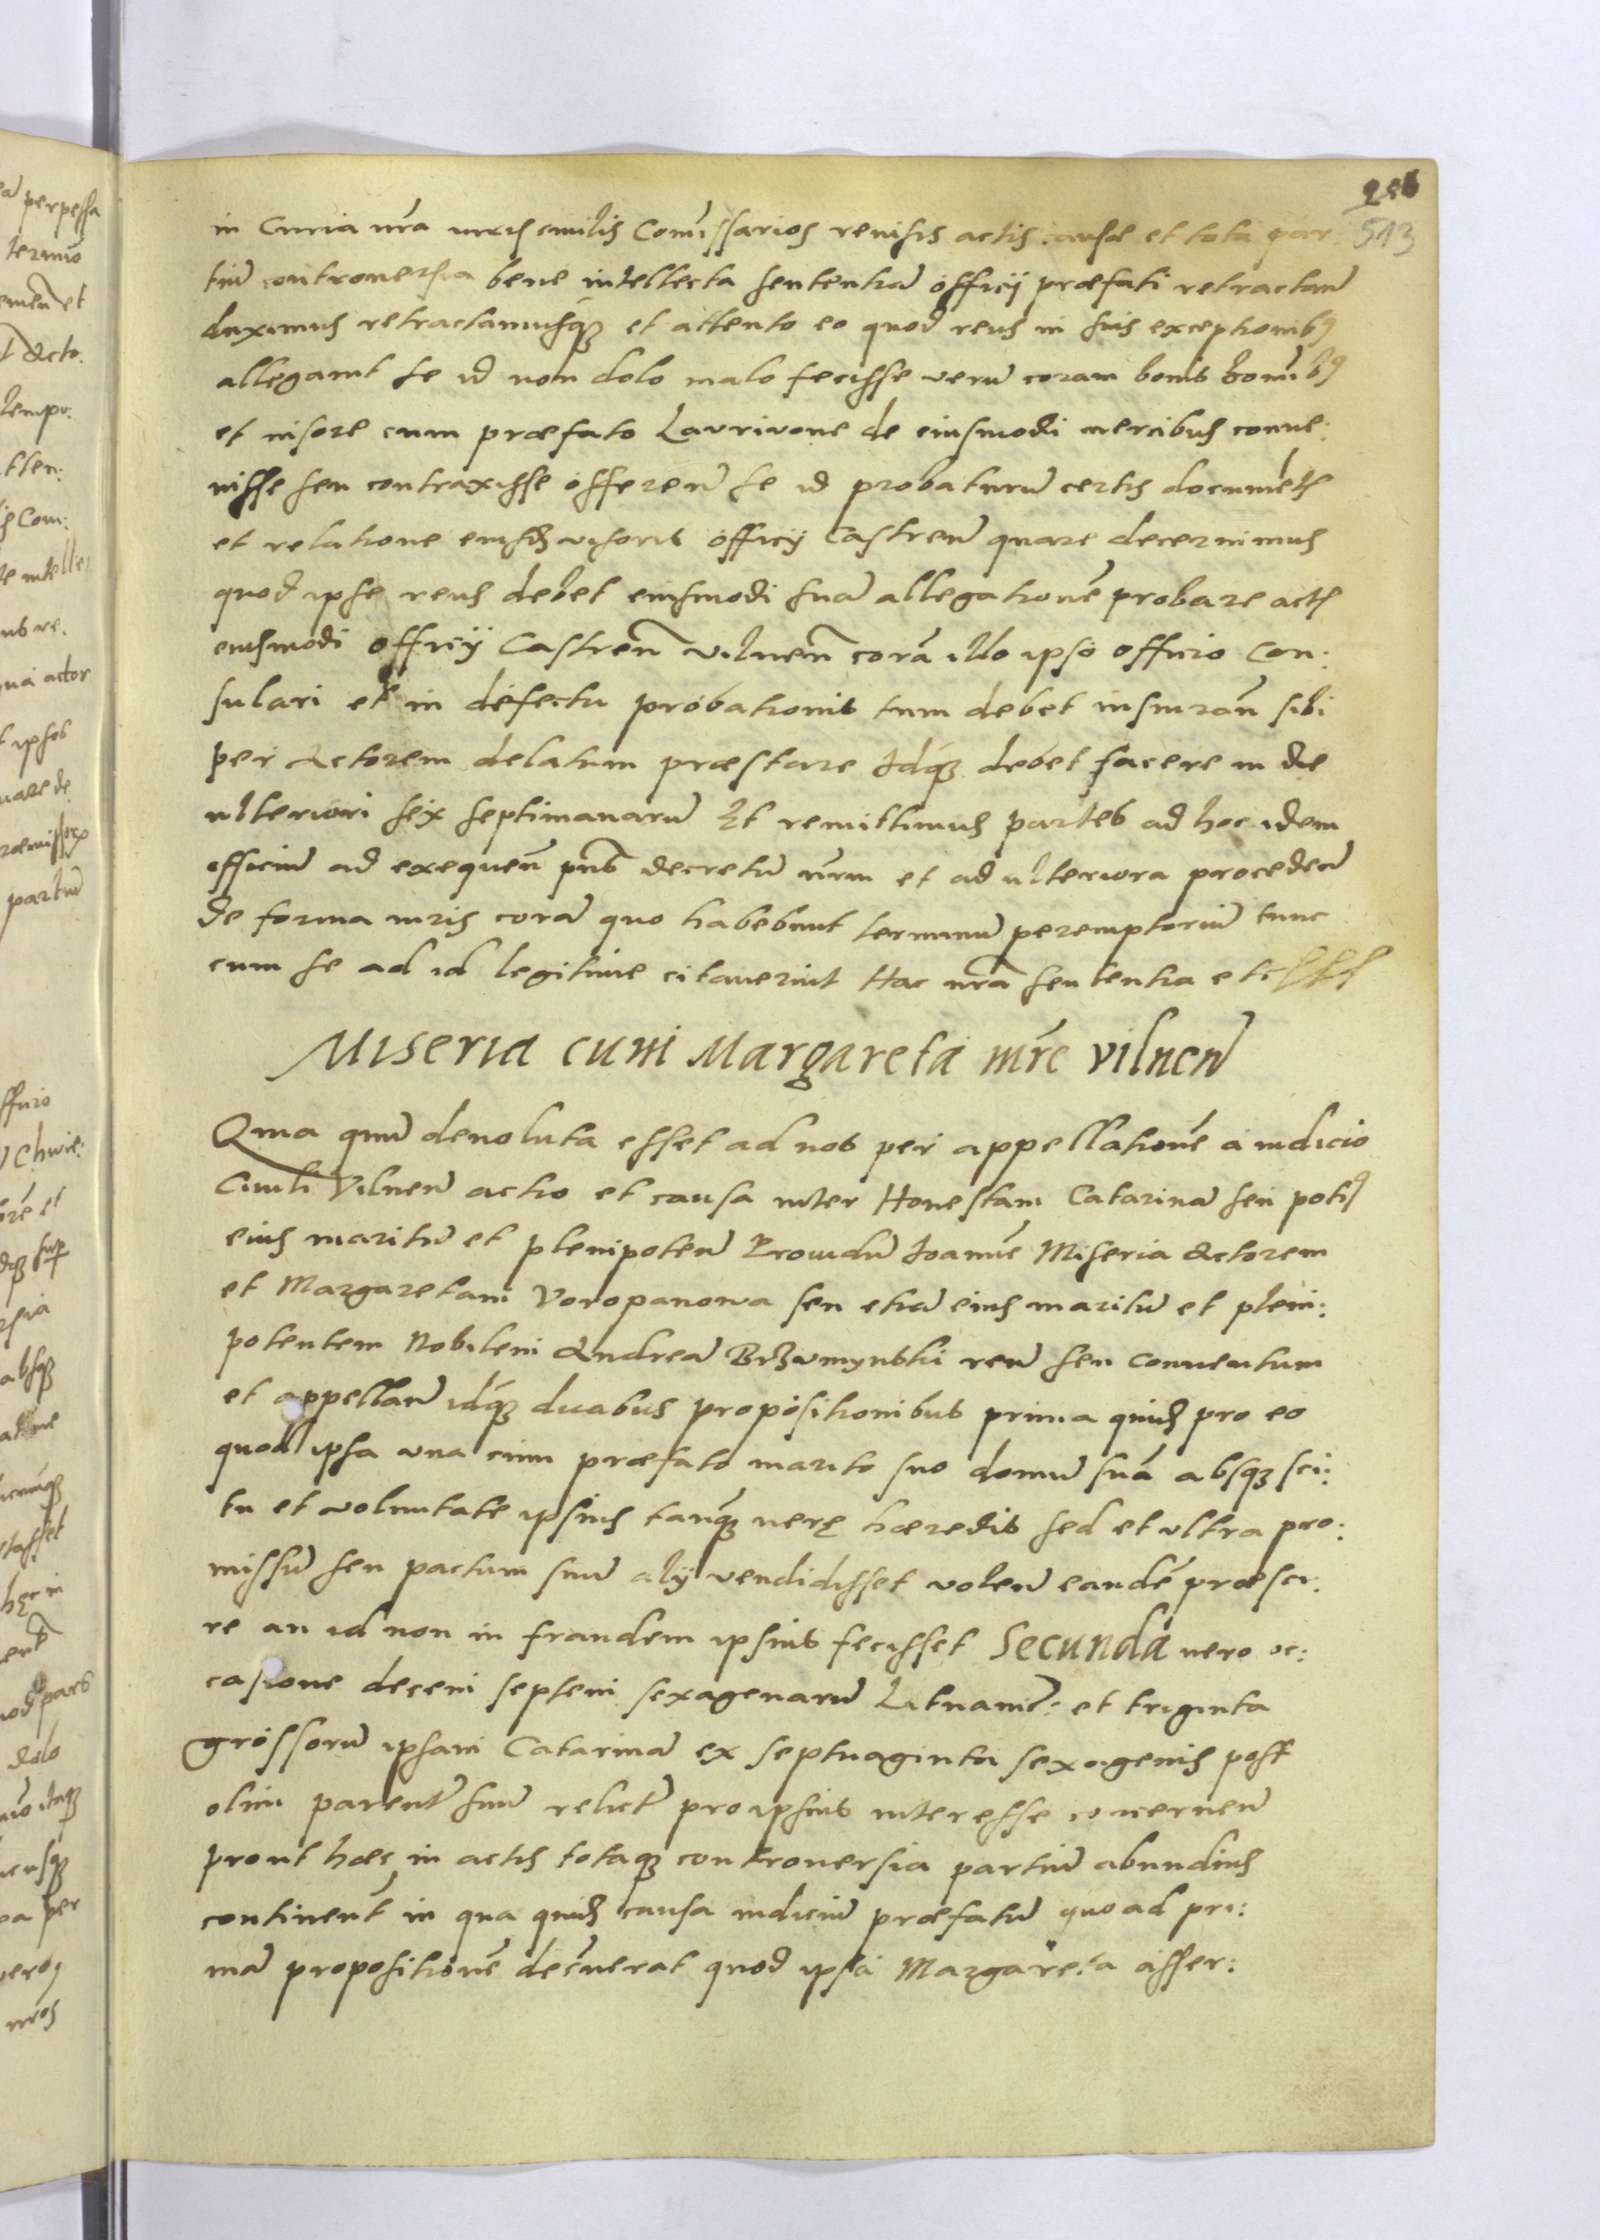 256
513
in Curia nr̃a iuris ciuilis Com̃issarios reuisis actis causæ et tota par
tiũ controuersia bene intellecta sententiã officij præfati retractanᷠ
duximus retractamusq̃ et attento eo quod reus in suis exceptionibꝰ
allegauit se id non dolo malo fecisse verũ coram bonis homĩbꝰ
et uisore cum præfato Lavrinone de eiusmodi mercibus conue:
nisse seu contraxisse offerenᷠ se id probaturũ certis documẽtis
et relatione eiusdẽ visoris officij Castrenᷠ quare decernimus
quod ipse reus debet eiusmodi suã allegationẽ probare actis
eiusmodi officij Castrenᷠ vilnenᷠ corã illo ipso officio Con:
sulari et in defectu probationis tum debet iusiurañ sibi
per Actorem delatum præstare Idq̃ debet facere in die
ulteriori sex septimanarũ Et remittimus partes ad hoc idem
officiũ ad exequenᷠ pñs decretũ nr̃um et ad ulteriora procedenᷠ
de forma iuris corã quo habebunt terminũ peremptoriũ tunc
cum se ad id legitime citauerint Hac nr̃a sententia etc
Miseria cum Margareta mr̃e vilnenᷠ
Quia quũ deuoluta esset ad nos per appellationẽ a iudicio
Ciuili Vilnenᷠ actio et causa inter Honestam Catarinã seu potiꝰ
eius maritũ et plenipotenᷠ Prouidũ Joannẽ Miseria Actorem
et Margaretam Voropanowa seu etiã eius maritũ et pleni:
potentem Nobilem Andreã Brzumynski reũ seu conuentum
et appellanᷠ idq̃ duabus propositionibus prima quidẽ pro eo
quod ipsa vna cum præfato marito suo domũ suã absq̃ sci:
tu et voluntate ipsius tanq̃ uerę hæredis sed et vltra pro:
missũ seu pactum suũ alij vendidisset volenᷠ eandẽ præsci:
re an id non in fraudem ipsius fecisset Secunda uero oc:
casione decem septem sexagenarũ Lituanic̃: et triginta
grossorũ ipsam Catarinã ex septuaginta sexagenis post
olim parentẽ suũ relictis pro ipsius interesse concernenᷠ
prout hæc in actis totaq̃ controuersia partiũ abundius
continentᷠ in qua quidẽ causa iudiciũ præfatũ quoad pri:
mã propositionẽ decr̃uerat quod ipsa Margareta asser: